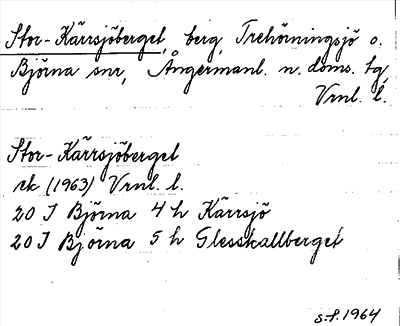 Stor-Kärrsjöberget, berg, Trehörningsjö o.
Björna snr, Ångermanl. n. doms. tg,
Vrnl. l.
Stor-Kärrsjöberget
rk (1963) Vrnl. l.
20 J Björna 4 h Kärrsjö
20 J Björna 5 h Glesskallberget
S.F. 1964